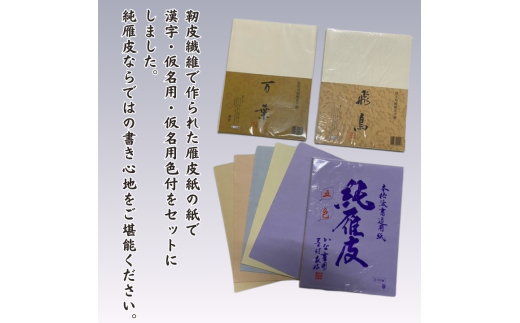 靭皮繊維で作られた雁皮紙の紙で
漢字・仮名用・仮名用色付をセットに
しました。
純雁皮ならではの書き心地をご堪能ください。
万葉
飛鳥
本格派書道用紙
純雁皮
五色
かな書用